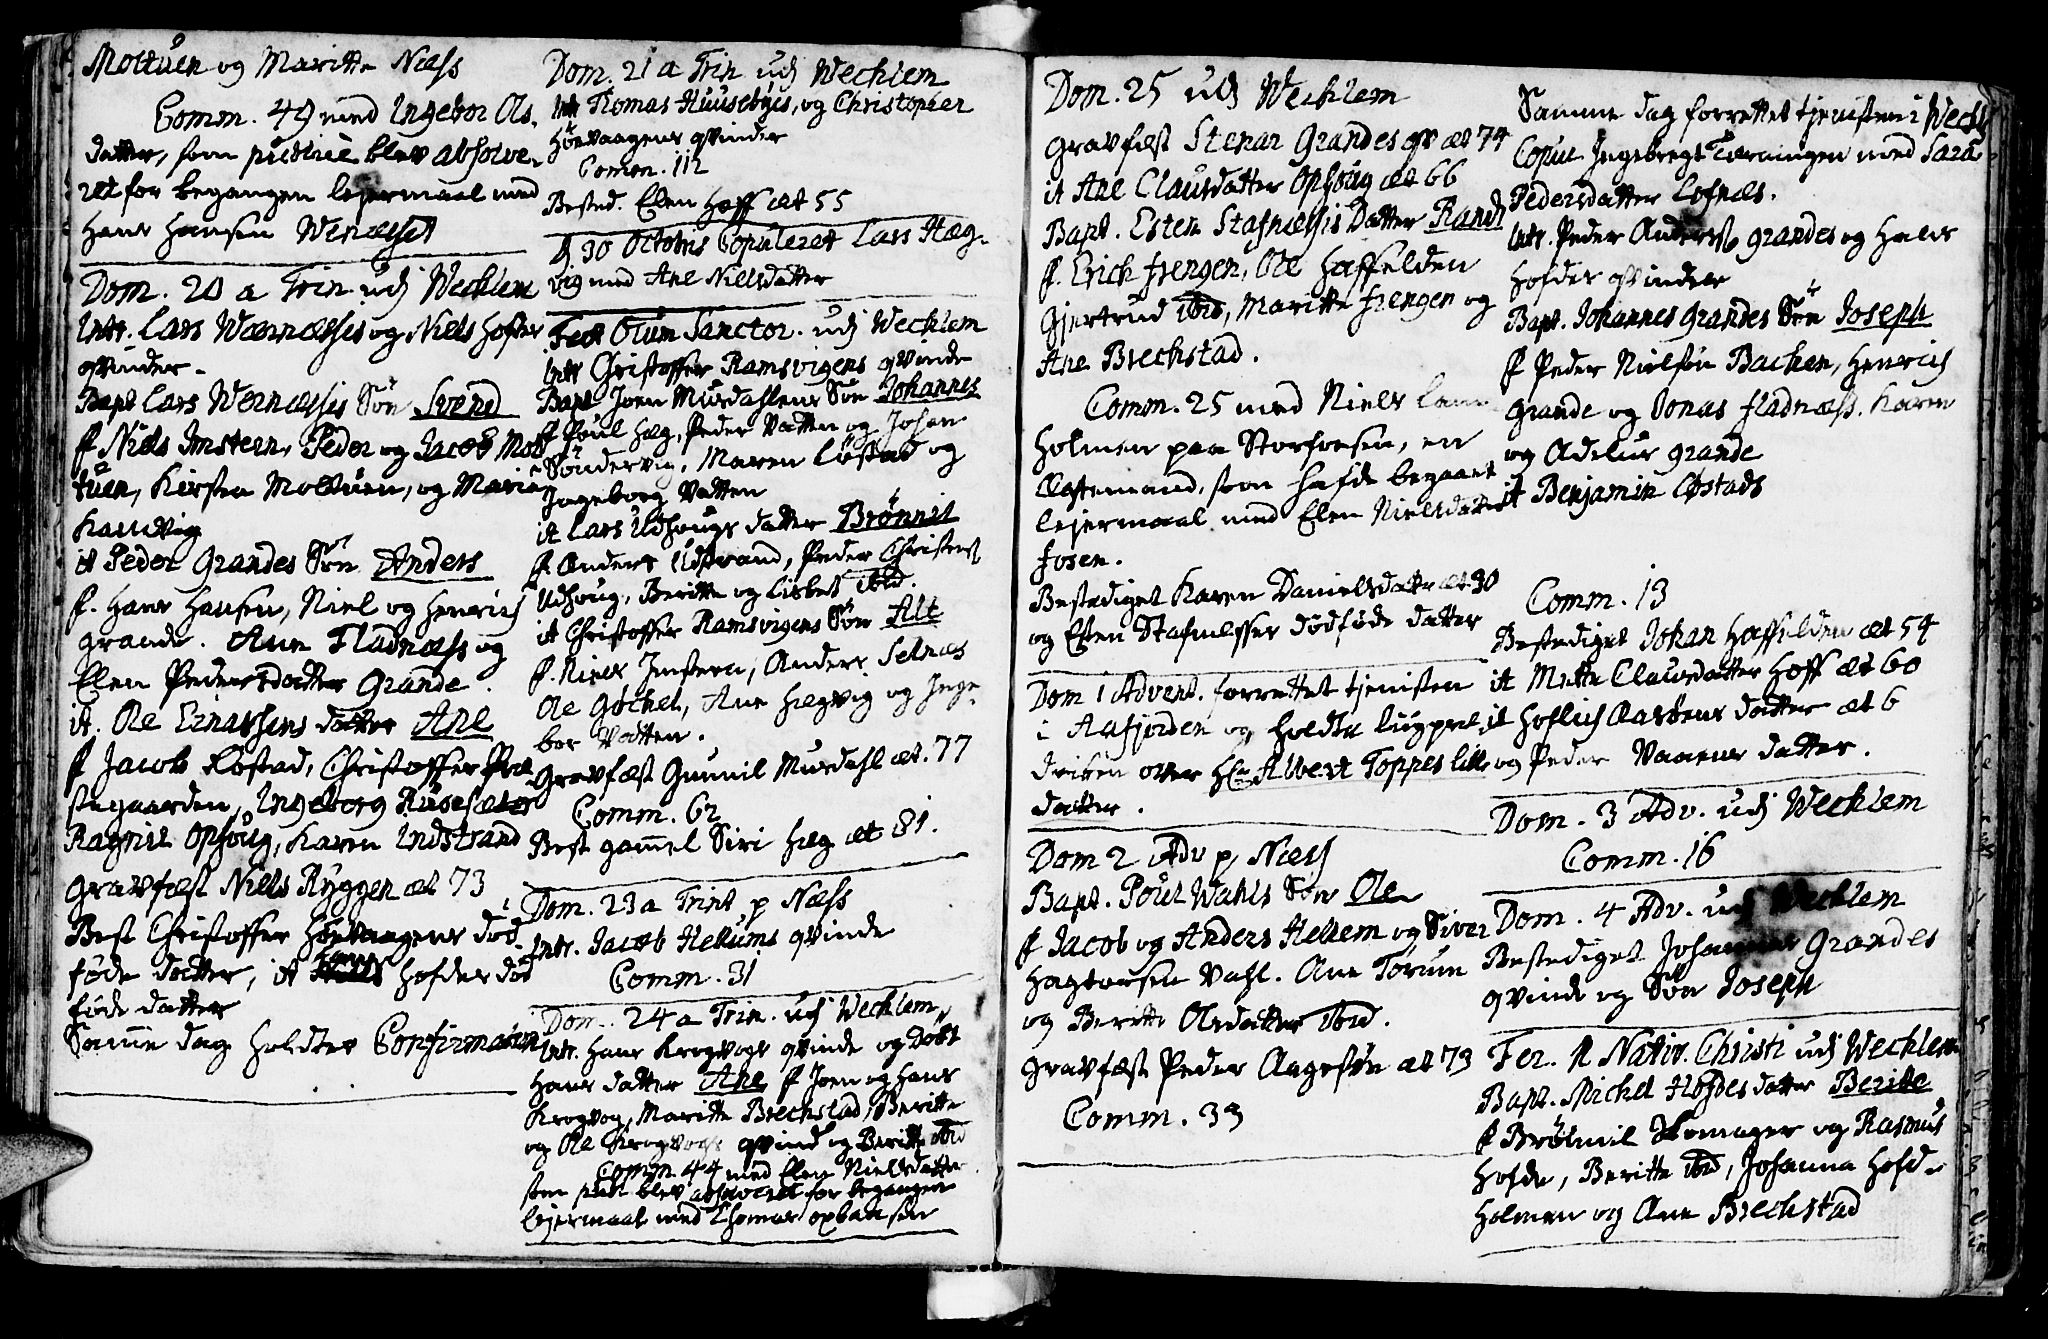 Moltuen og Maritte Næss
Comm. 49 med Ingebor Ols
datter, som publicè blev absolve-
ret for begangen lejermaal med
Hans Hansen Wernæsset
Dom. 20 a Trin udj Wechlem
Intr. Lars Wærnæssis og Niels Hofdes
qvinder.
Bapt Lars Wernæssis Søn Svend
f Niels Imstern, Peder og Jacob Mol
tuen, Kirsten Moltuen, og Marie
it Peder Grandes Søn Anders
f. Hans Hansen, Niel og Henrich
grande. Ane Fladnæss og
Elen Pedersdatter Grande.
it. Ole Einersens datter Ane
f Jacob Løstad, Christoffer Præ
stegaarden, Ingeborg
Ragnil Ophoug, Karen Indstrand
gravfæst Niels Ryggen æt 73
Best Christoffer Høevaagens død
føde datter, it Hofdes død
føde datter
Samme dag holdtes Confirmation
Dom. 21 a Trin udj Wechlem
Intr Tomas Huusebyes, og Christopher
Høevaagens qvinder
Comm. 112
Bested. Elen Hoff æt 55
d 30 Octobris Copuleret Lars Hæg-
vig med Ane Nielsdatter
Fest Oium Sanctor. udj Wechlem
Intr Christoffer Ramsvigens qvinde
Bapt Joen Murdahlens Søn Johannes
f Poul Hæg, Peder Vatten og Johan
Søndervig, Maren Løstad og
Ingeborg Vatten
it Lars Udhougs datter Brønnil
f Anders Udstrand, Peder Christens
Udhoug, Beritte og Lisbet ibid.
it Christoffer Ramsvigens Søn
f. Niels Imstern, Anders Selnæs
Ole Gøthel, Ane Hegvig og Inge-
bor Vatten.
Gravfæst Gunnil Murdahl æt. 77
Comm. 62
Best gammel Siri Hæg æt 81.
Dom. 23 a Trint p Næss
Intr. Jacob Hellums qvinde
Comm. 31
Dom. 24 a Trin. udj Wechlem
Intr. Hans Krogvogs qvinde og Døbt
Hans datter Ane f Joen og Hans
Krogvog, Maritte Brechstad, Beritte
og Ole Krogvogs qvind og Beritte ibid
Comm. 44 med Elen Nielsdatter
som publ blev absolveret for begangen
lejermaal med Thomas
Dom. 25 udj Wechlem
gravfæst Stenar Grandes qv æt 74
it Ane Clausdatter Ophoug æt 66
Bapt. Esten Stafnæssis Datter Randi
f. Erich frengen, Ole Haffelden
Gjertrud ibid, Maritte frengen og
Ane Brechstad.
Comm. 25 med Niels
Holmen paa Storfosen, en
Ægtemand, som hafde begaaet
lejermaal med Elen Nielsdatter
fosen.
Bestediget Karen Danielsdatter æt 30
og Esten Stafnesses dødføde datter
Dom 1 Advent. forrettet tjenisten
i Aafjorden og holdte
over Hr Albert Toppes lille
datter.
Dom 2 Adv p Næss
Bapt. Poul Wahls Søn Ole
f Jacob og Anders Hellem og Siver
Vahl. Ane Tørum
og Beritte Olsdatter ibid.
gravfæst Peder Aagesøn æt 73
Comm. 33
Samme dag forrettet tjenisten i Wechl
Copul Ingebregt Tærningen med Sara
Pedersdatter Lofnæs.
Intr. Peder Anders grandes og Hans
Hofdes qvinder
Bapt. Johannes Grandes Søn Joseph
f Peder Nielsøn Backen, Henrich
grande og Jonas fladnæss. Karen
og Adelus grande
it Benjamin Løstads
Comm. 13
Bestediget Johan Haffelden æt 54
it Mette Clausdatter Hoff æt 60
it datter æt 6
og Peder datter.
Dom. 3 Adv. udj Wechlem
Comm. 16
Dom. 4 Adv. udj Wechlem
Bestediget Johannes Grandes
qvinde og Søn Joseph
Fer. Nativ. Christi udj Wechlem
Bapt. Michel Hofdes datter Beritte
f Brølmil og Rasmus
Hofde, Beritte ibid, Johanna Hofde
Holmen og Ane Brechstad